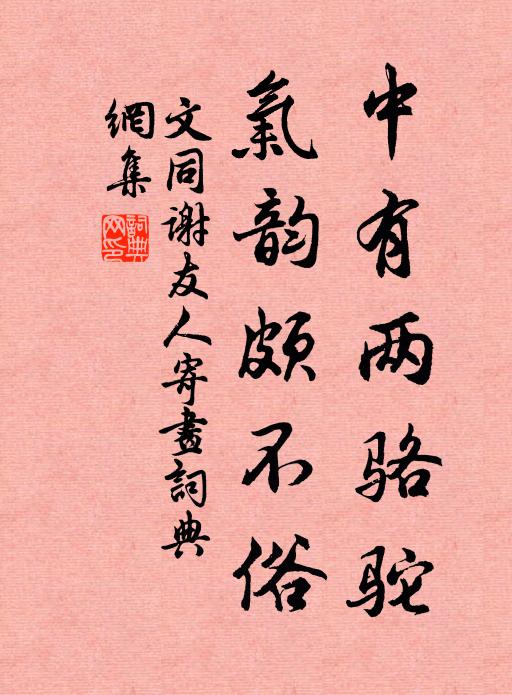 中有两骆驼
氣韵颇不俗
文同谢友人寄畫詞典
網集
詞典
网印